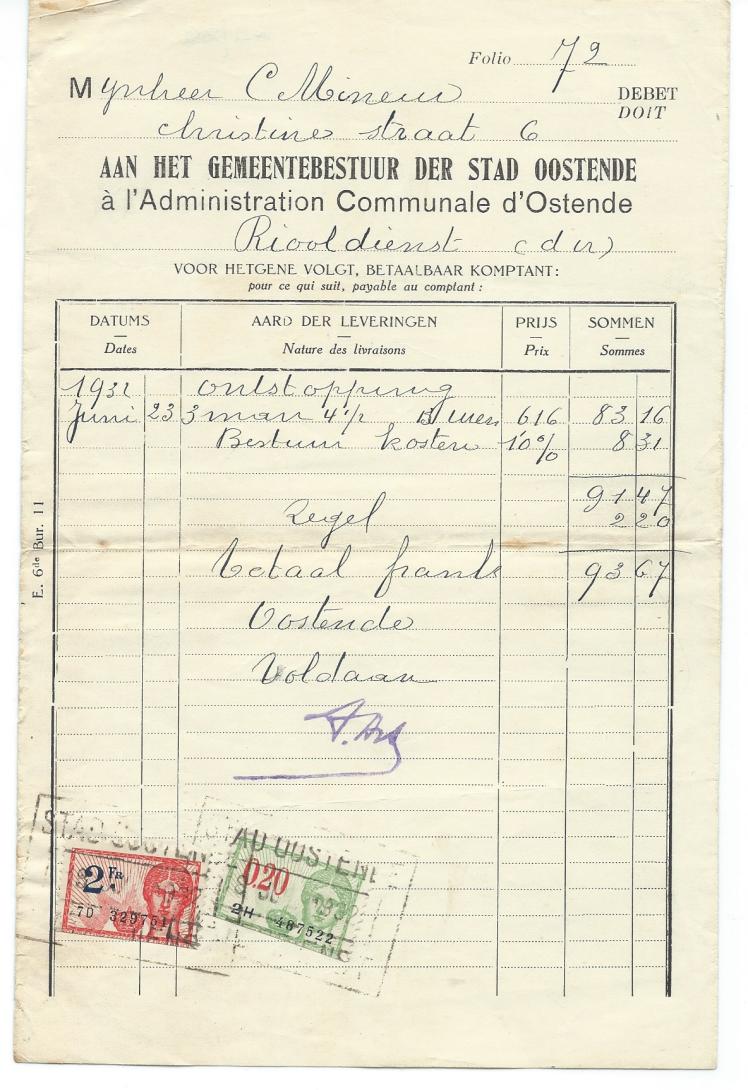 Folio 72
Mynheer C Mineur DEBET
DOIT
Christine straat 6
AAN HET GEMEENTEBESTUUR DER STAD OOSTENDE
à l'Administration Communale d'Ostende
Riooldienst
VOOR HETGENE VOLGT, BETAALBAAR KOMPTANT:
pour ce qui suit, payable au comptant :
DATUMS AARD DER LEVERINGEN PRIJS SOMMEN
Dates Nature des livraisons Prix Sommes
1932 ontstopping
Juni 23 3 man 4 1/2 uren 6 16 83 16
Bestuur kosten 10% 8 31
91 47
Zegel 2 20
Totaal franks 93 67
Oostende
Voldaan
E. 6de Bur. 11
STAD OOSTENDE
STAD OOSTENDE
2 Fr
0.20
7D 329751
2H 487522